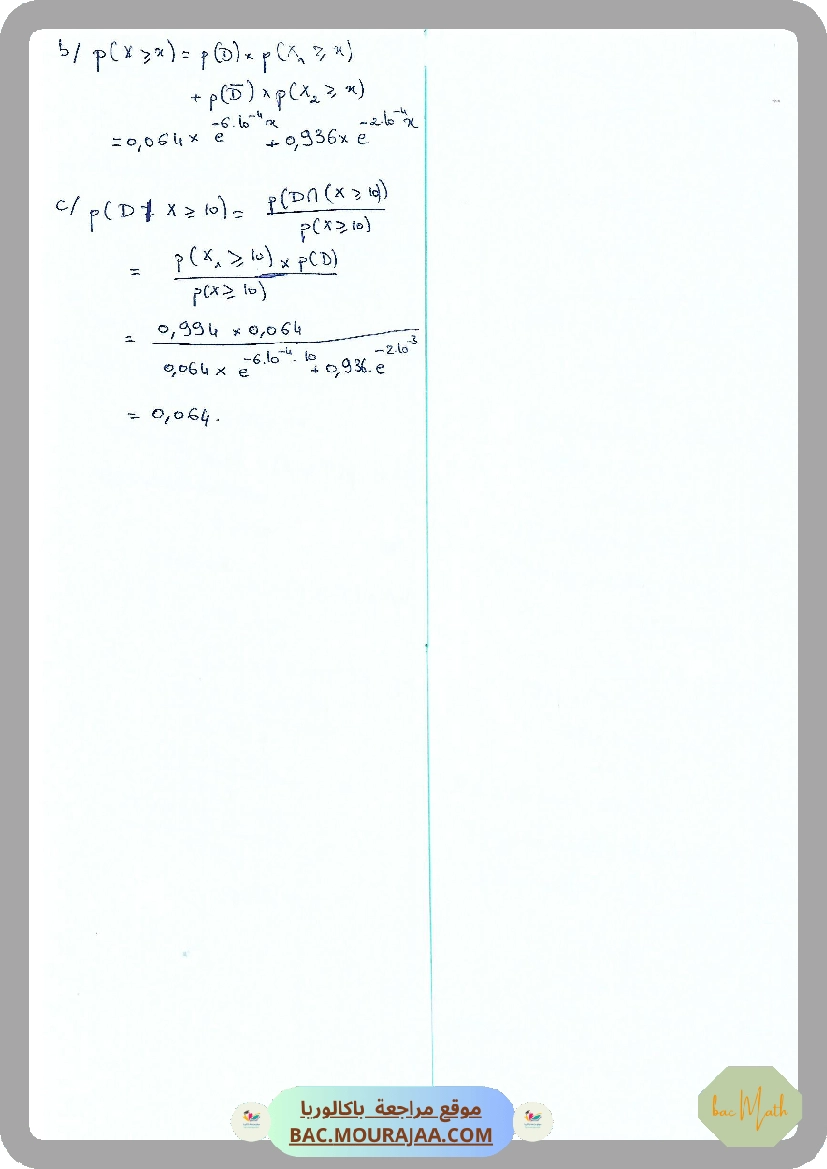 b/ p(X ≥ x) = p(D) × p(X₁ ≥ x)
+ p(D̄) × p(X₂ ≥ x)
= 0,064 × e^{-6.10^{-4} x} + 0,936 × e^{-2.10^{-4} x}
c/ p(D / X ≥ 10) = p(D∩(X ≥ 10)) / p(X ≥ 10)
= p(X₁ ≥ 10) × p(D) / p(X ≥ 10)
= 0,994 × 0,064 / 0,064 × e^{-6.10^{-4}.10} + 0,936.e^{-2.10^{-3}}
= 0,064.
موقع مراجعة باكالوريا
BAC.MOURAJAA.COM
bac Math